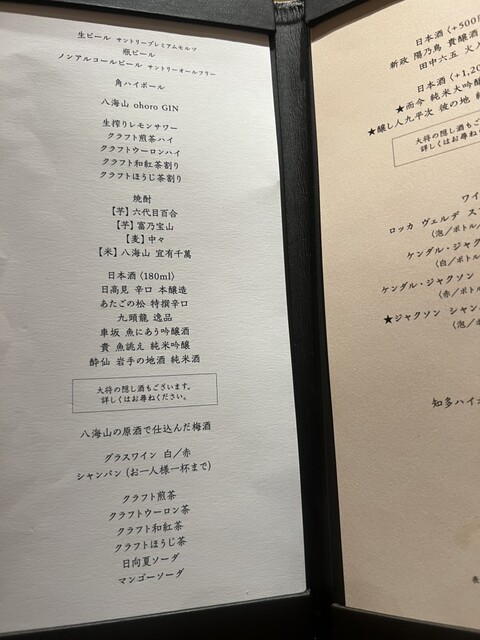 生ビール サントリープレミアムモルツ
瓶ビール
ノンアルコールビール サントリーオールフリー
角ハイボール
八海山 ohoro GIN
生搾りレモンサワー
クラフト煎茶ハイ
クラフトウーロンハイ
クラフト和紅茶割り
クラフトほうじ茶割り
焼酎
【芋】六代目百合
【芋】富乃宝山
【麦】中々
【米】八海山 宜有千萬
日本酒(180ml)
日高見 辛口 本醸造
あたごの松 特撰辛口
九頭龍 逸品
車坂 魚にあう吟醸酒
貴 魚誂え 純米吟醸
酔仙 岩手の地酒 純米酒
大将の隠し酒もございます。
詳しくはお尋ねください。
八海山の原酒で仕込んだ梅酒
グラスワイン 白/赤
シャンパン(お一人様一杯まで)
クラフト煎茶
クラフトウーロン茶
クラフト和紅茶
クラフトほうじ茶
日向夏ソーダ
マンゴーソーダ
日本酒(+500
新政 陽乃鳥 貴醸酒
田中六五 火入
日本酒(+1,20
★而今 純米大吟醸
★醸し人九平次 彼の地 純
大将の隠し酒もご
詳しくはお尋ね
ワイ
ロッカ ヴェルデ ス
(泡/ボトル
ケンダル・ジャク
(白/ボトル
ケンダル・ジャクソン
(赤/ボトル
★ジャクソン シャン
(泡/ボ
知多ハイボ